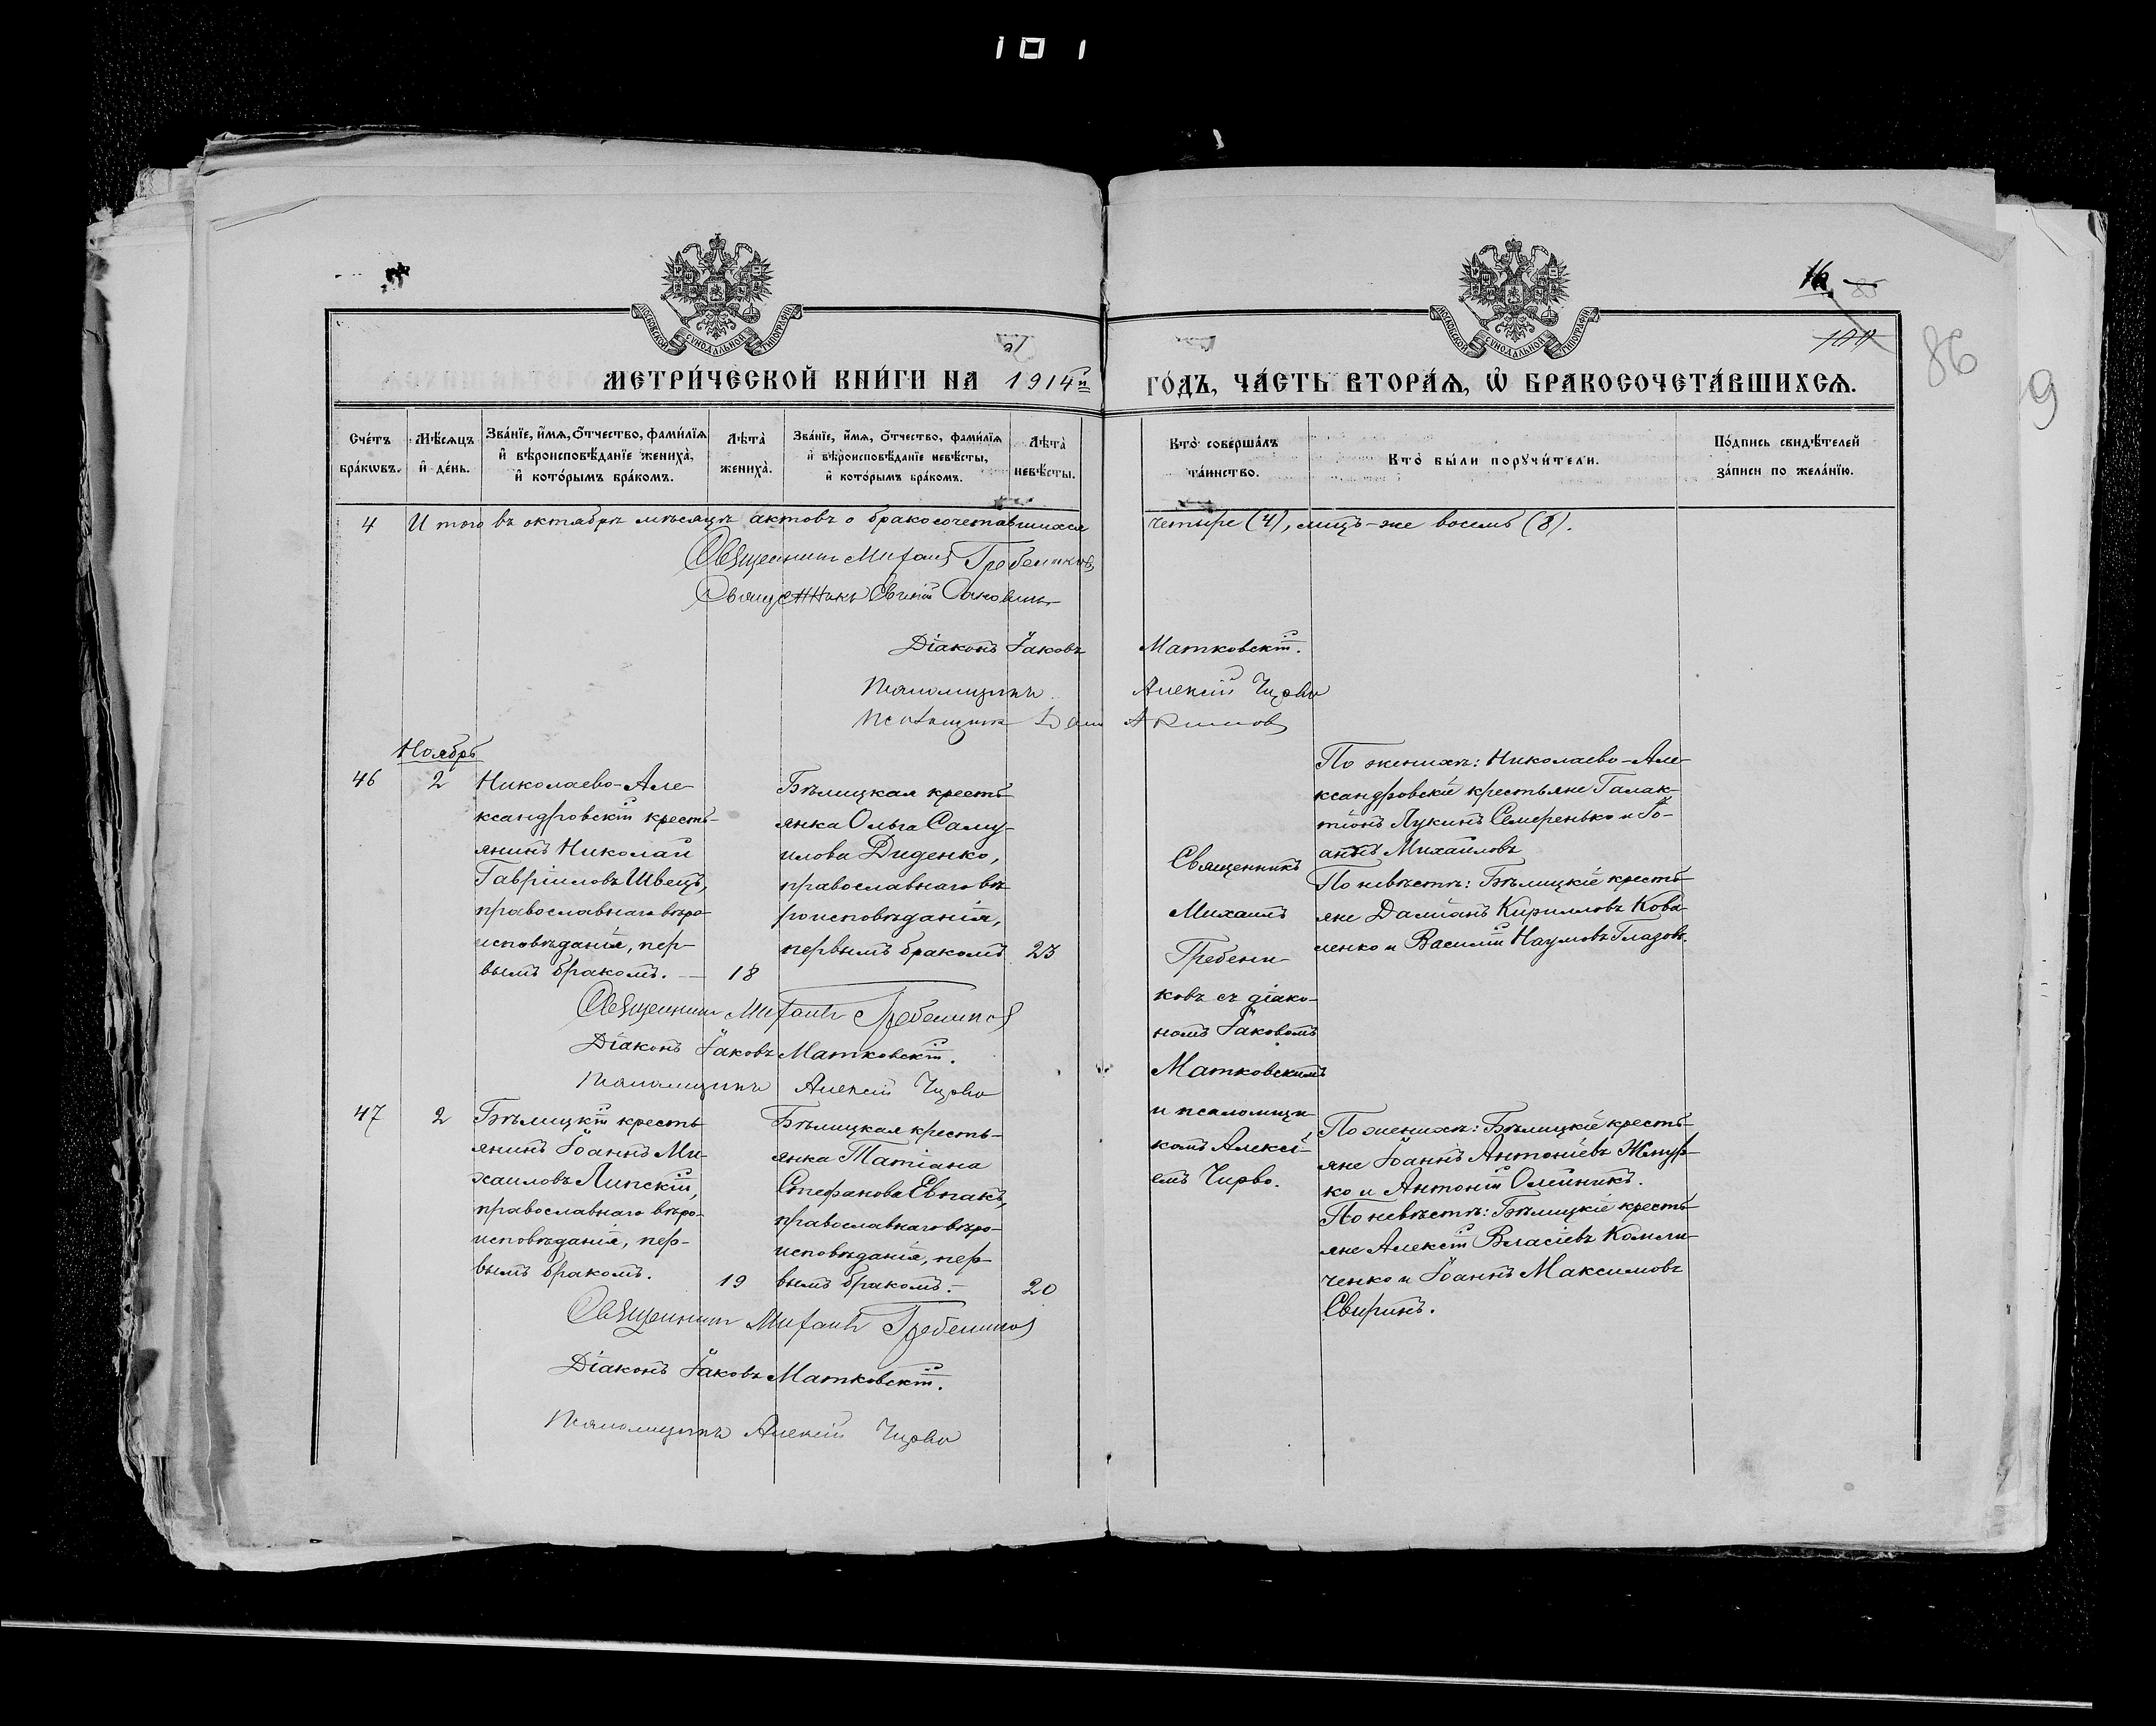 101
МОСКОВСКОЙ СѴНОДАЛЬНОЙ ТИПОГРАФІИ
МОСКОВСКОЙ СѴНОДАЛЬНОЙ ТИПОГРАФІИ
16
85
100
86
9
МЕТРИ́ЧЕСКОЙ КНИ́ГИ НА 1914й ГО́ДЪ, ЧА́СТЬ ВТОРА́Я, Ѡ҆ БРАКОСОЧЕТА́ВШИХСЯ.
Сче́тъ бра́ковъ.
Мѣ́сяцъ и҆ де́нь.
Зва́нїе, и҆́мя, ѻ҆́тчество, фами́лїя и҆ вѣроисповѣ́данїе жениха̀, и҆ кото́рымъ бра́комъ.
Лѣта̀ жениха̀.
Зва́нїе, и҆́мя, ѻ҆́тчество, фами́лїя и҆ вѣроисповѣ́данїе невѣ́сты, и҆ кото́рымъ бра́комъ.
Лѣта̀ невѣ́сты.
Кто̀ соверша́лъ та́инство.
Кто̀ бы́ли порꙋчи́тели.
По́дпись свидѣ́телей за́писи по жела́нїю.
4 Итого въ октябрѣ мѣсяцѣ актовъ о бракосочетавшихся четыре (4), лицъ-же восемь (8).
Священникъ Михаилъ Гребениковъ
Священникъ
Діаконъ Іаковъ Матковскій.
Псаломщикъ Алексій Чирво
Псаломщикъ Акимов
Ноябрь
46 2
Николаево-Але-
ксандровскій кресть-
янинъ Николай
Гавріиловъ Швецъ,
православнаго вѣро-
исповѣданія, пер-
вымъ бракомъ. — 18
Бѣлицкая кресть-
янка Ольга Саму-
илова Диденко,
православнаго вѣ-
роисповѣданія,
первымъ бракомъ 23
Священникъ
Михаилъ
Гребени-
ковъ съ діако-
номъ Іаковомъ
Матковскимъ
и псаломщи-
комъ Алексі-
емъ Чирво.
По женихѣ: Николаево-Але-
ксандровскіе крестьяне Галак-
тіонъ Лукинъ Семеренько и Іо-
аннъ Михаиловъ
По невѣстѣ: Бѣлицкіе кресть-
яне Даміанъ Кирилловъ Кова-
ленко и Василій Наумовъ Глазовъ.
Священникъ Михаилъ Гребениковъ
Діаконъ Іаковъ Матковскій.
Псаломщикъ Алексій Чирво
47 2
Бѣлицкій кресть-
янинъ Іоаннъ Ми-
хаиловъ Липскій,
православнаго вѣро-
исповѣданія, пер-
вымъ бракомъ. 19
Бѣлицкая кресть-
янка Татіана
Стефанова Евпакъ,
православнаго вѣро-
исповѣданія, пер-
вымъ бракомъ. — 20
По женихѣ: Бѣлицкіе кресть-
яне Іоаннъ Антоніевъ Жмур-
ко и Антоній Олейникъ.
По невѣстѣ: Бѣлицкіе кресть-
яне Алексій Власіевъ Комли-
ченко и Іоаннъ Максимовъ
Свиринъ.
Священникъ Михаилъ Гребениковъ
Діаконъ Іаковъ Матковскій.
Псаломщикъ Алексій Чирво